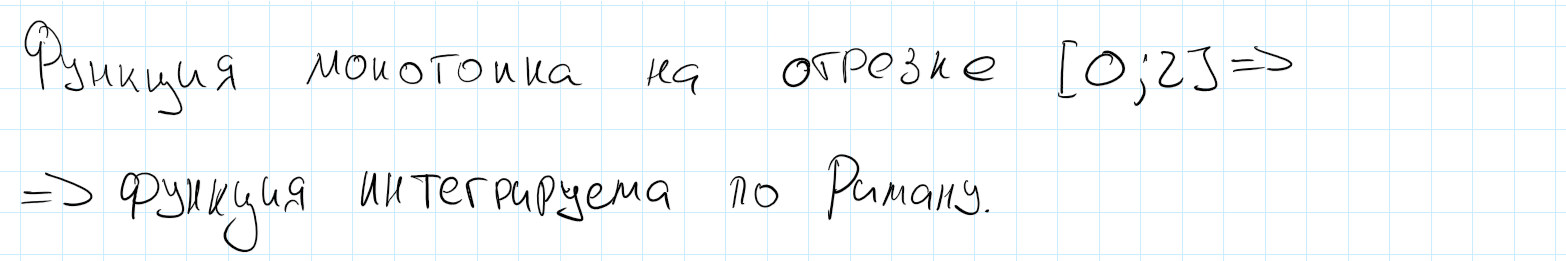 Функция монотонна на отрезке [0;2] =>
=> функция интегрируема по Риману.